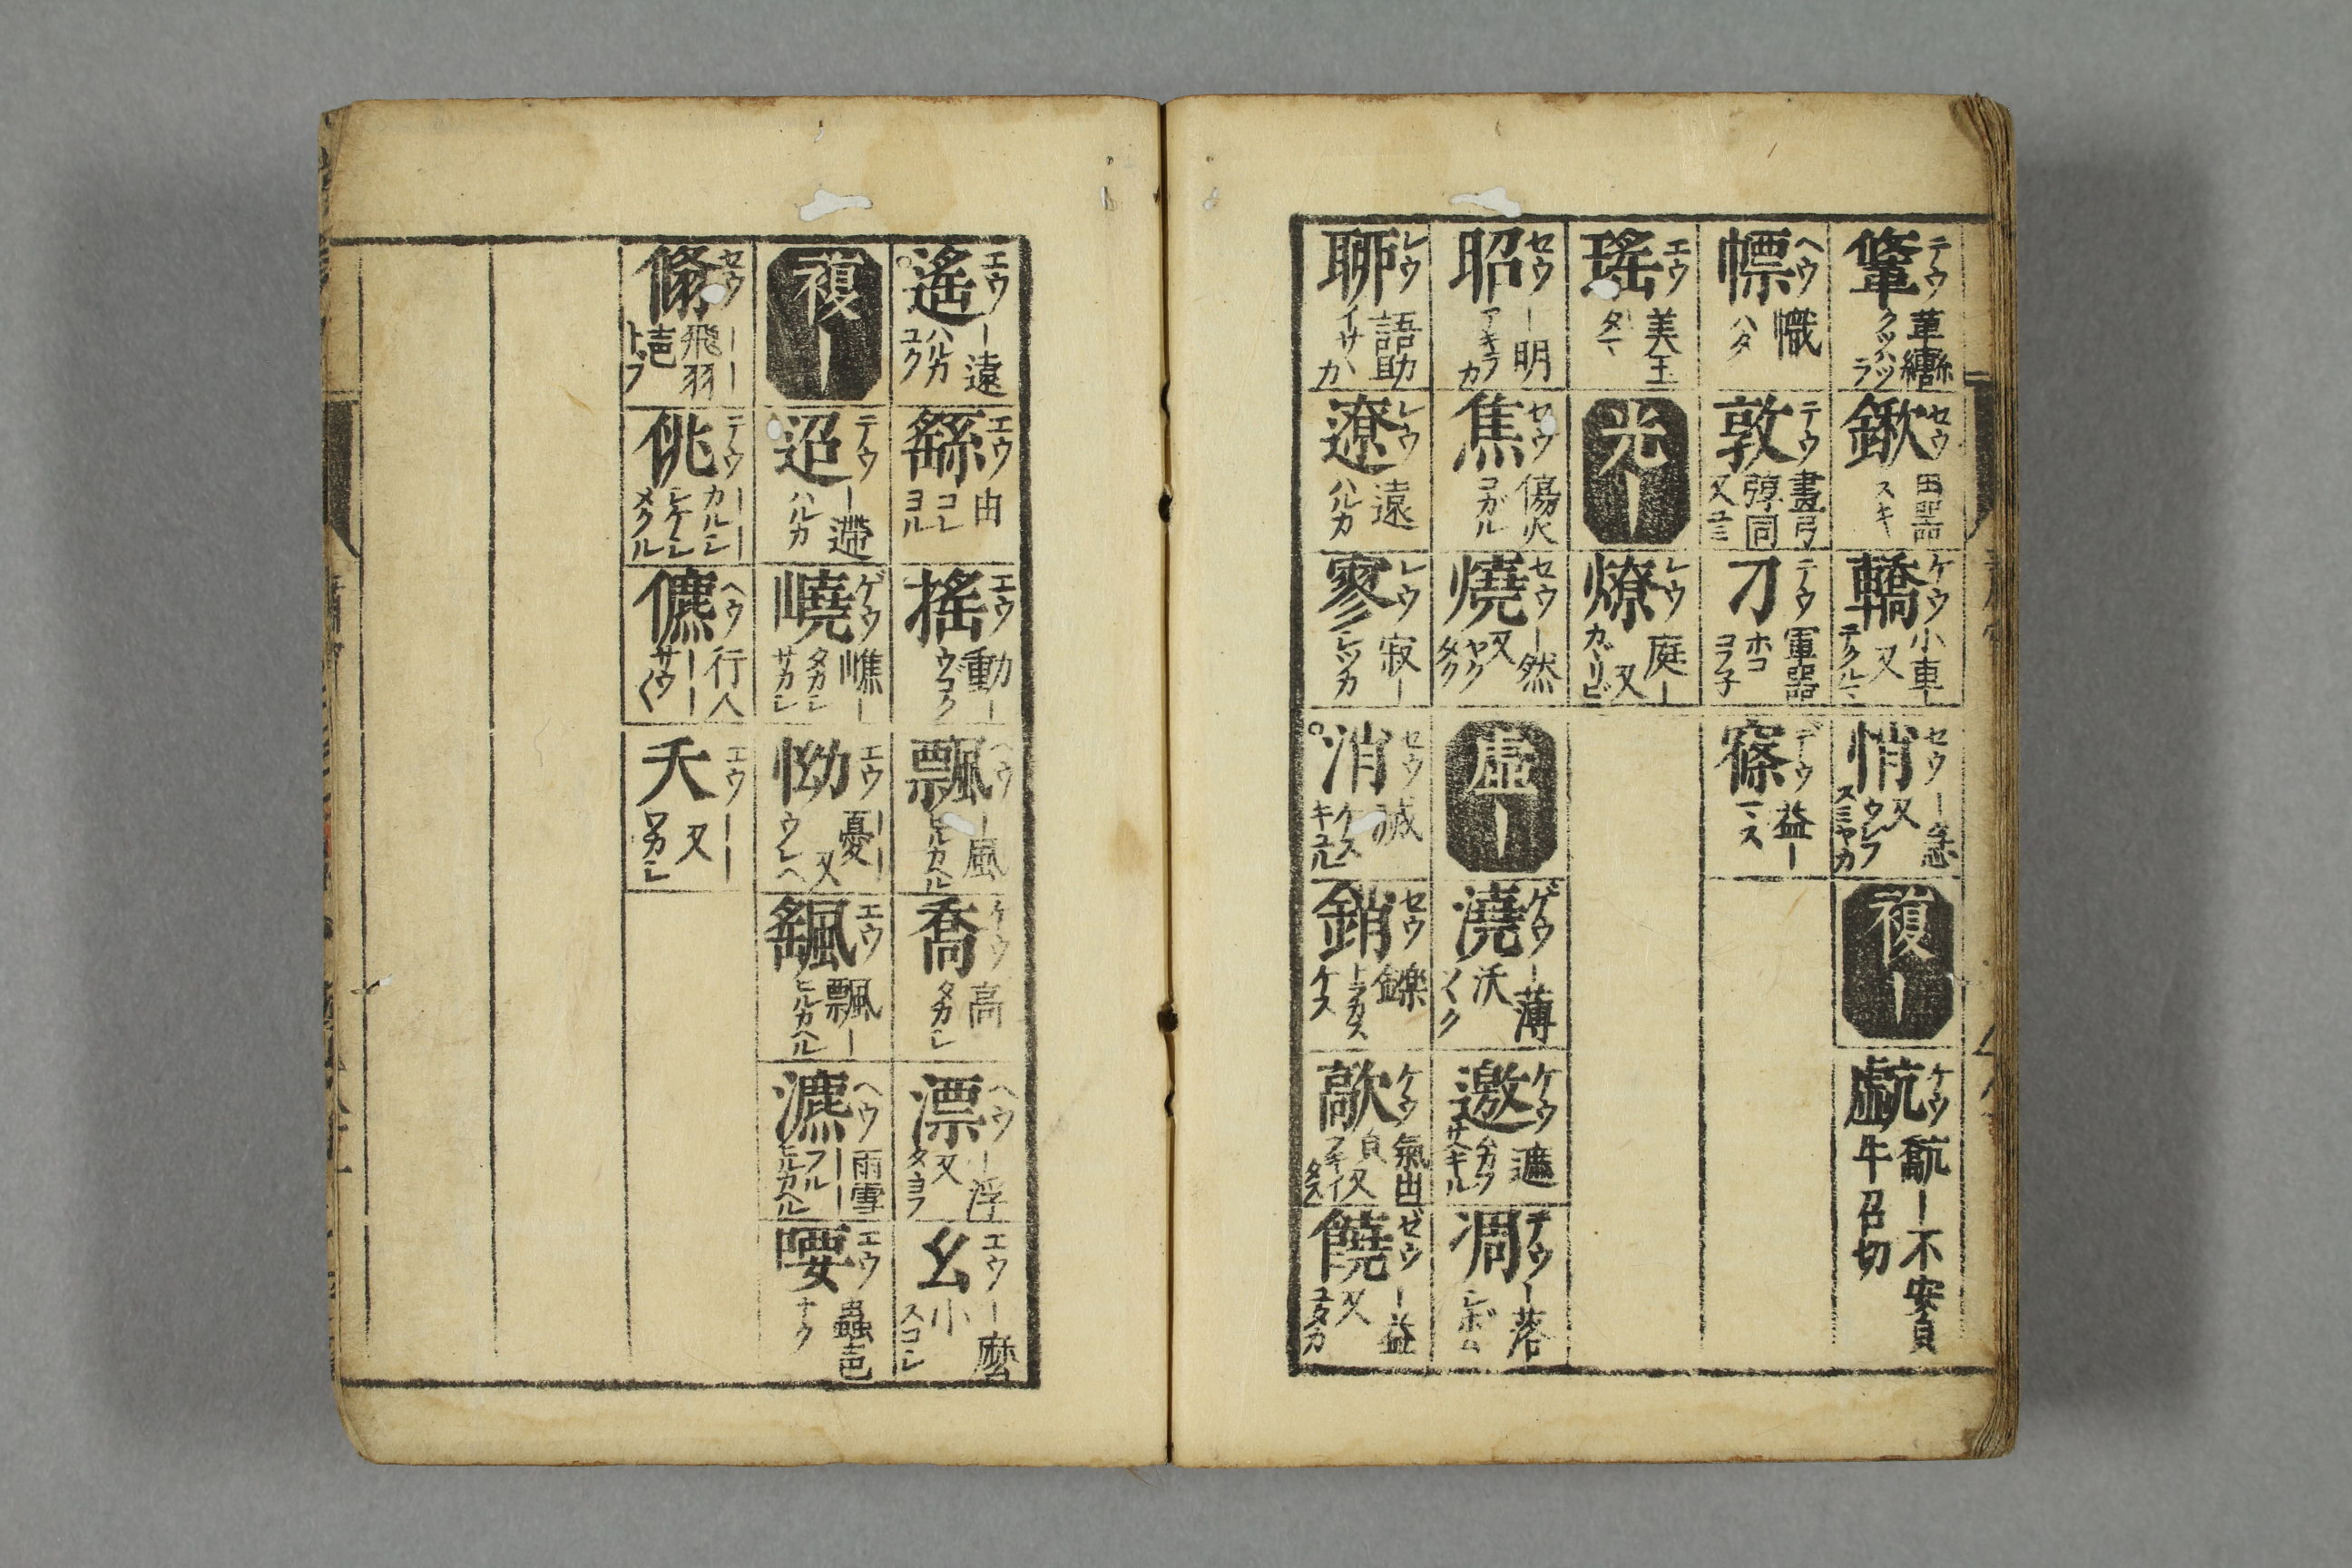 鞗 テウ 革轡 クツハツラ
鍬 セウ 田器 スキ
轎 ケウ 小車 又 テクルマ
悄 セウ ー急 又 ウレフ スミヤカ
複ー
ケウ ー不安貌 牛召切
幖 ヘウ 幟 ハタ
敦 テウ 畫弓 弴同
刁 テウ 軍器 ホコ
篠 デウ 益ー マス
瑤 エウ 美玉 タマ
光ー
燎 レウ 庭ー 又 カヾリビ
昭 セウ ー明 アキラカ
焦 セウ 傷火 コガル
燒 セウ ー然 又 ヤク タク
虛ー
澆 ゲウ ー薄 沃 ソヽク
邀 ケウ 遮 ムカフ サヘキル
凋 テウ ー落 シボム
聊 レウ 語助 イサヽカ
遼 レウ 遠 ハルカ
寥 レウ 寂ー シツカ
消 セウ 滅 ケス キユル
銷 セウ 鑠 トラカス ケス
歊 ケウ 氣出皃 又
饒 ゼウ ー益 又 ユタカ
遙 エウ ー遠 ハルカ ユク
繇 エウ 由 コレ ヨル
搖 エウ 動ー ウゴク
飄 ヘウ ー風 ヒルカヘル
喬 ケウ 高 タカシ
漂 ヘウ ー浮 又 タヽヨフ
幺 エウ ー麼 小 スコシ
複ー
迢 テウ ー遰 ハルカ
嶢 ゲウ 嶕ー タカシ サカシ
怮 エウ ーー憂 又 ウレヘ
颻 エウ 飄ー ヒルカヘル
瀌 ヘウ 雨雪ーー フル ヒルカヘル
喓 エウ 蟲声 ナク
翛 セウ ーー 飛羽声 トフ
佻 テウ ーー カルシ シケシ メクル
儦 ヘウ 行人ーー サウ〱
夭 エウ ーー 又 ワカシ